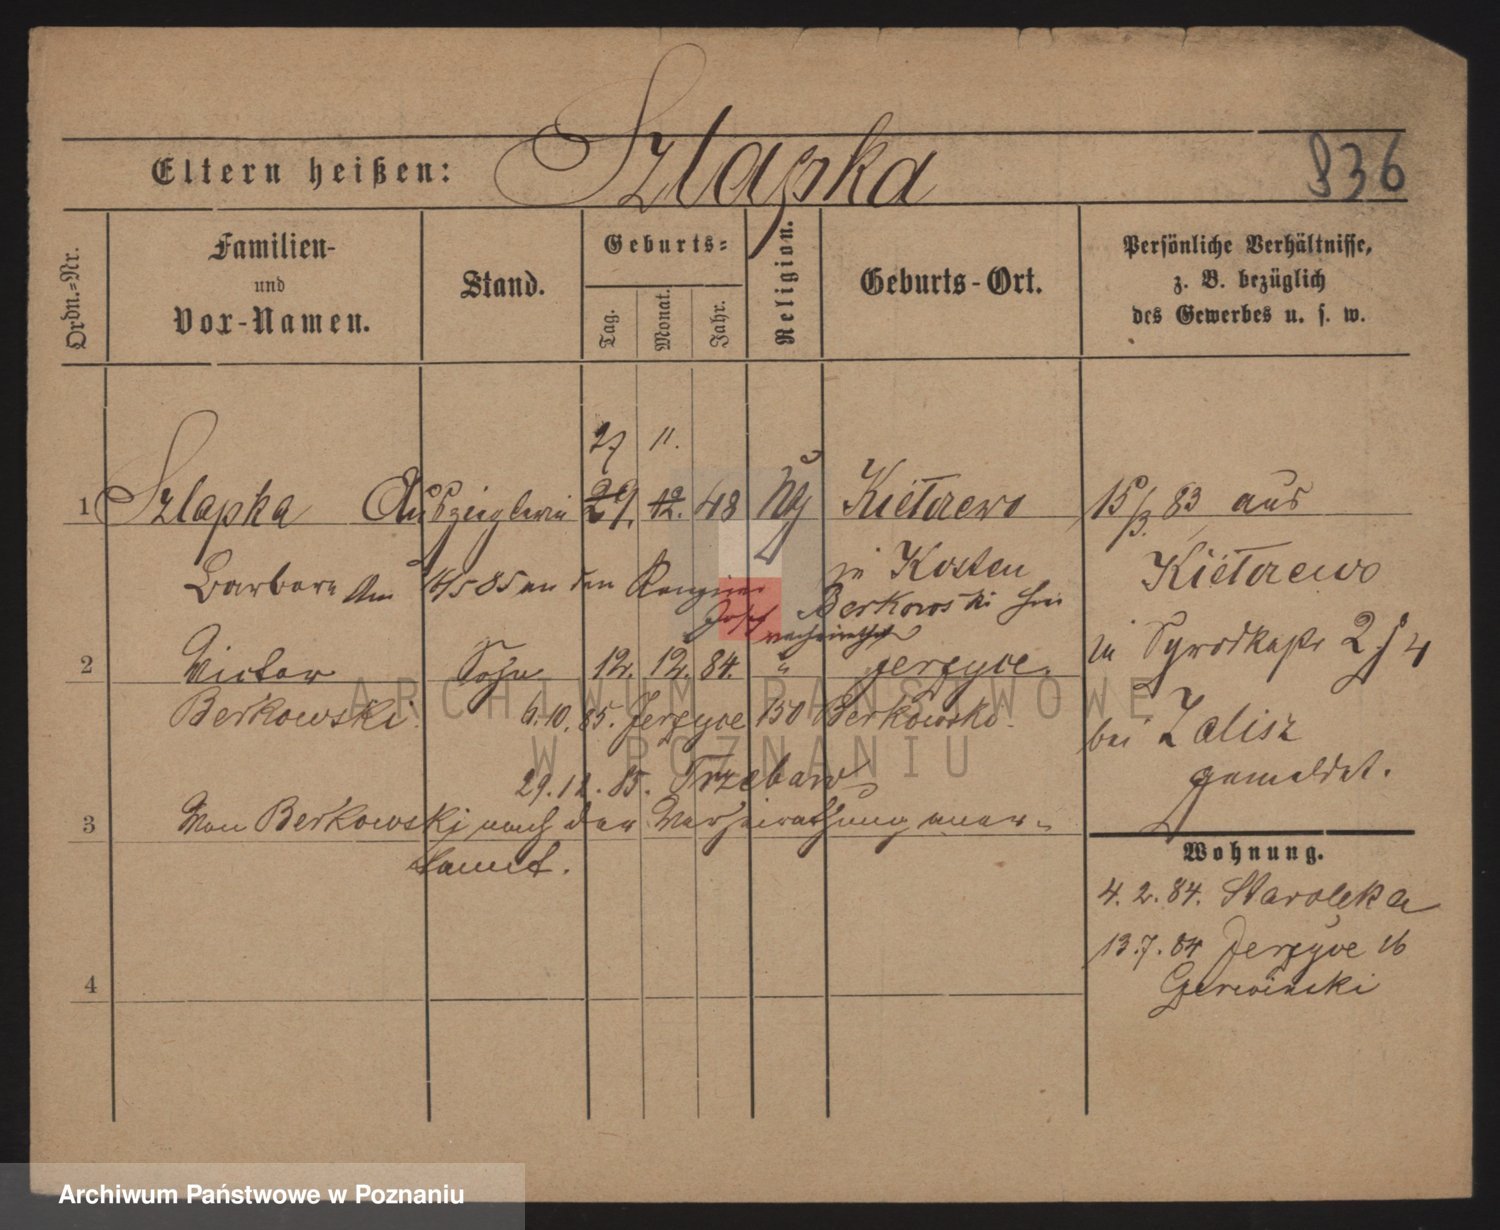 Eltern heißen: Szlapka 836
Ordn.=Nr.
Familien-
und
Vor-Namen.
Stand.
Geburts=
Tag.
Monat.
Jahr.
Religion.
Geburts-Ort.
Persönliche Verhältnisse,
z. B. bezüglich
des Gewerbes u. s. w.
27 11.
1 Szlapka 29. 12. 48 Kietrzewo
Barbara am 14/5 85 an den
in Kosten
Josef Berkowski hier
verheirathet
2 Victor Sohn 12. 12. 84. " Jerzyce.
Berkowski. 6.10.85. Jerzyce 150 Berkowski.
29.12.85. Trzebaw
3 Von Berkowski nach der Verheirathung aner-
kannt.
4
15/3. 83 aus
Kietrzewo
in
bei
gemeldet.
Wohnung.
4.2.84. Staroleka
13.7.84 Jerzyce 16
ARCHIWUM PAŃSTWOWE
W POZNANIU
Archiwum Państwowe w Poznaniu